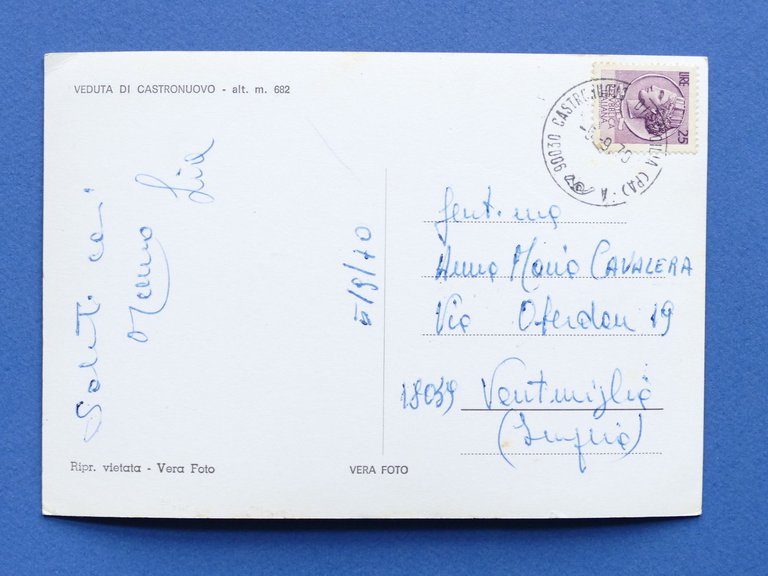 VEDUTA DI CASTRONUOVO - alt. m. 682
Saluti cari
Lia
5/9/70
Gent.ma
Anna Maria CAVALERA
Via Oberdan 19
18039 Ventimiglia
(Imperia)
Ripr. vietata - Vera Foto
VERA FOTO
90030 CASTRONUOVO
SICILIA (PA) A
9.70
REPUBBLICA
ITALIANA
LIRE 25